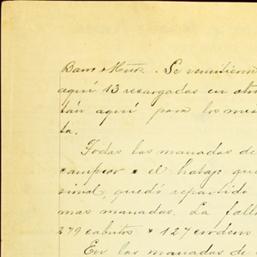 Se remitieron
aquí 13 recargadas en otra
tán aquí para los mes
ta.
Todas las manadas de
campear el hatajo que
sinal, quedó repartido
mas manadas. La falla
279 cabutos 127 
En las manadas de